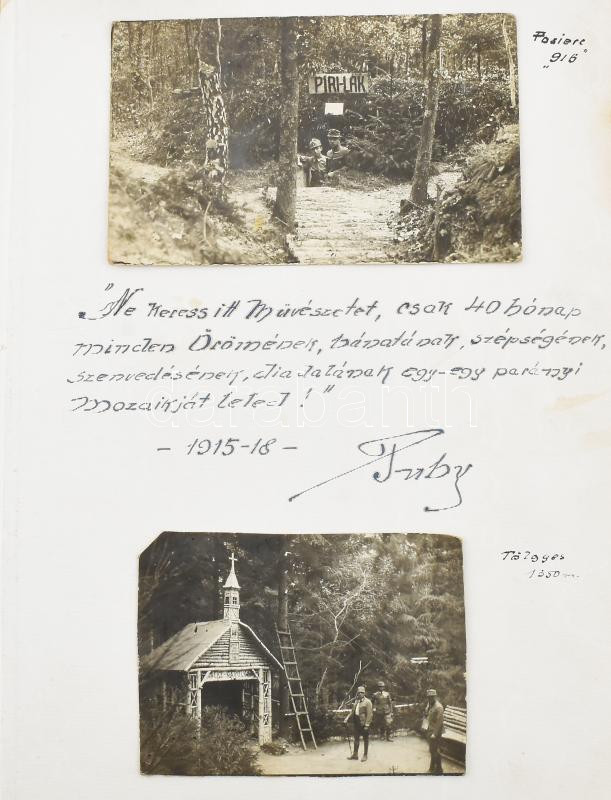 "916"
PIRI-LAK
"Ne keress itt Művészetet, csak 40 hónap
minden Örömének, bánatának, szépségének,
szenvedésének, diadalának egy-egy parányi
Mozaikját leled!"
- 1915-18 -
Tölgyes
1350 m.
darabanth